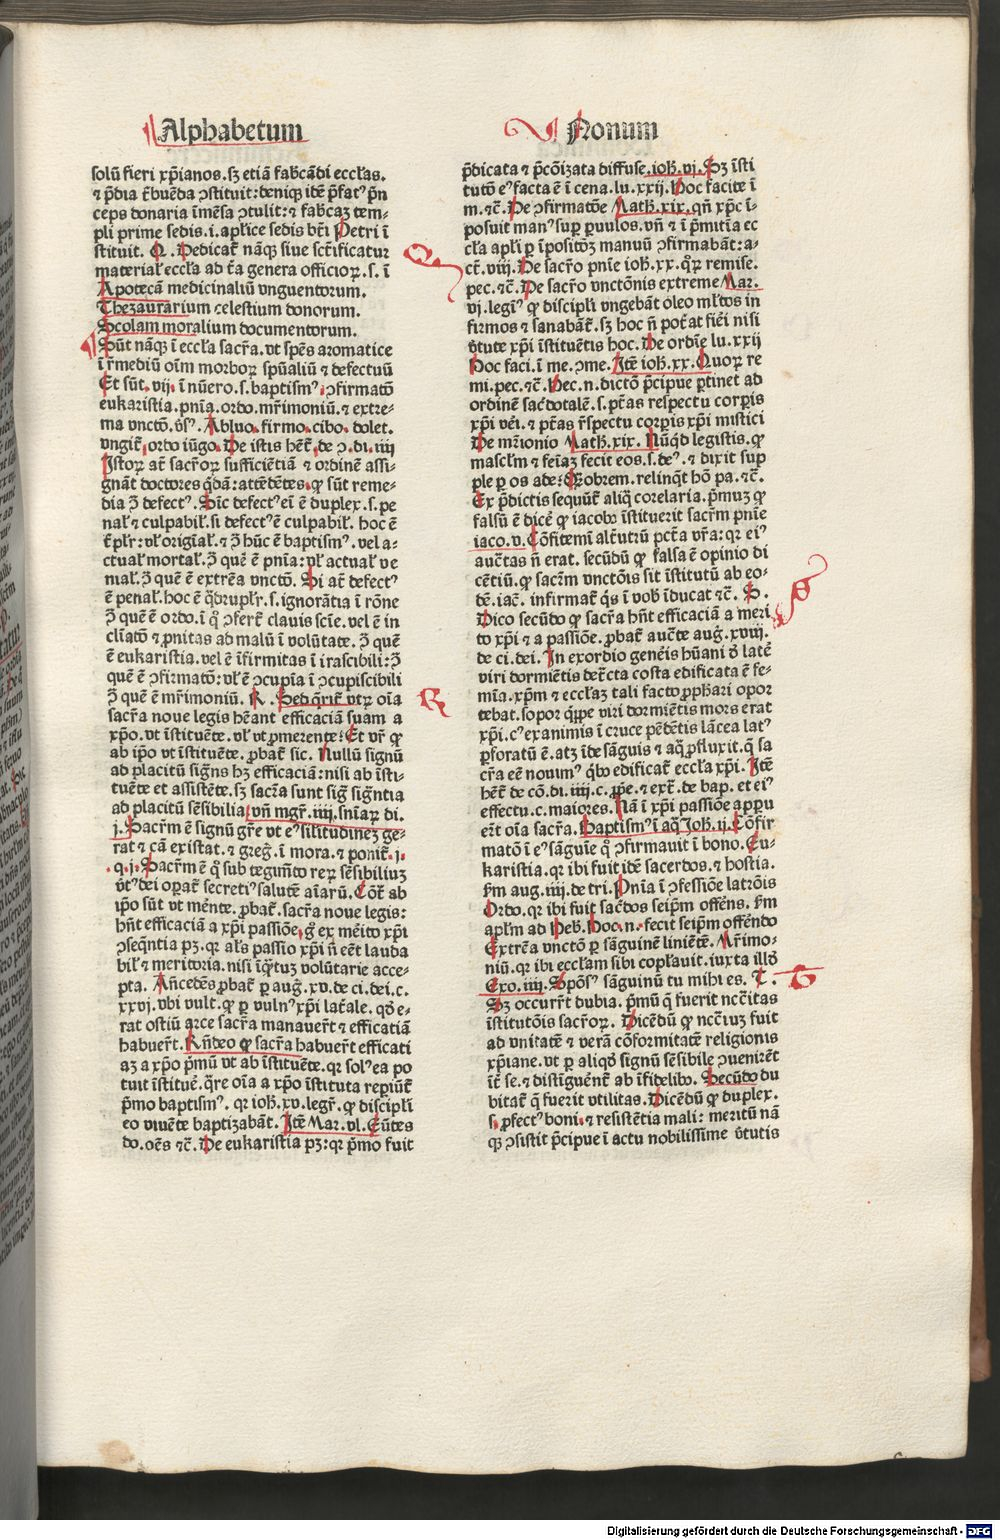 Alphabetum
Nonum
solũ fieri xp̃ianos.sꝫ etiã fabꝛicãdi ecclas.
⁊ p̃dia tribuẽda ꝯstituit:deniqꝫ idẽ p̃fatꝰ pꝛin
ceps donaria ĩmẽsa ꝯtulit:⁊ fabꝛicaꝫ tem-
pli pꝛime sedis.i.apl̃ice sedis bt̃i Petri ĩ
stituit. Q. Dedicat̃ nãqꝫ siue sct̃ificatur
material̃ eccl̃a ad t̃a genera officioꝝ.s.ĩ
Apotecã medicinaliũ vnguentoꝛum.
Thezaurarium celestium donoꝛum.
Scolam moꝛalium documentoꝛum.
Sũt nãqꝫ ĩ eccl̃a sacr̃a.vt sp̃es aromatice
ĩ r̃mediũ oĩm moꝛboꝝ sp̃ualiũ ⁊ defectuũ
Et sũt.vij.ĩ nũero.s.baptismꝰ.ꝯfirmatõ
eukaristia.pnĩa.oꝛdo.mr̃imoniũ.⁊ extre-
ma vnctõ. v̉sꝰ. Abluo.firmo.cibo.dolet.
vngit̃.oꝛdo iũgo. De istis hẽt̃.de ꝯ.di.iiij
Istoꝝ at̃ sacr̃oꝝ sufficiẽtiã ⁊ oꝛdinẽ assi-
gnãt doctoꝛes q̃dã:attẽdẽtes.ꝙ sũt reme-
dia ꝯ̃ defectꝰ. Hic defectꝰ eĩ ẽ duplex.s.pe
nal̃ ⁊ culpabil̃.si defectꝰ ẽ culpabil̃.hoc ẽ
t̃pl̃r:vl̃ oꝛigĩal̃.⁊ ꝯ̃ hũc ẽ baptismꝰ.vel a-
ctual̃ moꝛtal̃.ꝯ̃ quẽ ẽ pnĩa:vl̃ actual̃ ve
nial̃.ꝯ̃ quẽ ẽ extrẽa vnctõ. Si at̃ defectꝰ
ẽ penal̃.hoc ẽ q̃drupl̃r.s.ignoꝛãtia ĩ rõne
ꝯ̃ quẽ ẽ oꝛdo.ĩ q̊ ꝯfert̃ clauis scĩe.vel ẽ in
cliatõ ⁊ ꝓnitas ad malũ ĩ volũtate.ꝯ̃ quẽ
ẽ eukaristia.vel ẽ ĩfirmitas ĩ irascibili:ꝯ̃
quẽ ẽ ꝯfirmatõ:vl̃ ẽ ꝯcupĩa ĩ ꝯcupiscibili
ꝯ̃ quẽ ẽ mr̃imoniũ. R. Sed q̃rit̃ vtꝝ oĩa
sacr̃a noue legis hẽant efficaciã suam a
xp̃o.vt ĩstituẽte.vl̃ vt ꝓmerente: Et vr̃ ꝙ
ab ip̃o vt ĩstituẽte.ꝓbat̃ sic. Nullũ signũ
ad placitũ sig̃ns hꝫ efficaciã:nisi ab ĩsti-
tuẽte et assistẽte.sꝫ sacr̃a sunt sig̃ sig̃ntia
ad placitũ sẽsibilia.vñ mgr̃.iiij.snĩaꝝ di.
j. Sacr̃m ẽ signũ gr̃e vt eꝰ silitudineꝫ ge-
rat ⁊ cã existat.⁊ greg̃.ĩ moꝛa.⁊ ponit̃.j.
.q.j. Sacr̃m ẽ q̊ sub tegumẽto reꝝ sẽsibiliuꝫ
v̉tꝰ dei operat̃ secretiꝰ salutẽ aĩarũ. Cõt̃ ab
ip̃o sũt vt mẽnte.ꝓbat̃.sacr̃a noue legis:
hñt efficaciã a xp̃i passiõe.g̃ ex mẽito xp̃i
ꝯseq̃ntia pꝫ.qꝛ al̃s passio xp̃i ñ eẽt lauda
bil̃ ⁊ meritoꝛia.nisi ĩq̃tuꝫ volũtarie acce-
pta. Añcedẽs ꝓbat̃ ꝑ aug̃.xv.de ci.dei.c.
xxvj.vbi vult.ꝙ ꝑ vulnꝰ xp̃i lat̃ale.qd̉ e-
rat ostiũ arce sacr̃a manauer̃t ⁊ efficatiã
habuer̃t. Rñdeo ꝙ sacr̃a habuer̃t efficati
aꝫ a xp̃o pꝛimũ vt ab ĩstituẽte.qꝛ solꝰ ea po
tuit ĩstitue.q̃re oĩa a xp̃o ĩstituta repiũt̃
pꝛimo baptismꝰ.qꝛ ioh̃.xv.legr̃.ꝙ discipl̃i
eo viuẽte baptizabãt. Itẽ Mar.vl̃. Eũtes
do.oẽs ⁊c̃. De eukaristia pꝫ:qꝛ pꝛimo fuit
p̃dicata ⁊ p̃coĩzata diffuse.ioh̃.vj. Sꝫ ĩsti
tutõ eꝰ facta ẽ ĩ cena.lu.xxij. Hoc facite ĩ
m.⁊c̃. De ꝯfirmatõe Math̃.xix.qñ xp̃c ĩ-
posuit manꝰ suꝑ paruulos.vñ ⁊ ĩ pꝛimitĩa ec
cl̃a apl̃i ꝑ ĩpositõꝫ manuũ ꝯfirmabãt:a-
ct̃.viij. De sacr̃o pnĩe ioh̃.xx.q̊ꝝ remise.
pec.⁊c̃. De sacr̃o vnctõnis extreme Mar.
vj.legĩꝰ ꝙ discipl̃i vngebãt oleo ml̃tos in
firmos ⁊ sanabãt̃.sꝫ hoc ñ pot̃at fieri nisi
v̉tute xp̃i ĩstituẽtis hoc. De oꝛdĩe lu.xxij
Hoc faci.ĩ me.ꝯme. Itẽ ioh̃.xx. Quoꝝ re
mi.pec.⁊c̃. Hec.n.dictõ pꝛĩcipue ꝑtinet ad
oꝛdinẽ sac̉dotalẽ.s.pt̃as respectu coꝛpis
xp̃i vẽi.⁊ pt̃as r̃spectu coꝛpis xp̃i mistici
De mr̃ionio Math̃.xix. Nũq̃d legistis.ꝙ
mascl̃m ⁊ feĩaꝫ fecit eos.s.deꝰ.⁊ dixit suꝑ
ple ꝑ os ade: Quobrem.relinq̃t hõ pa.⁊c̃.
Ex p̃dictis sequũt̃ aliq̃ coꝛelaria.pꝛimuꝫ ꝙ
falsũ ẽ dicẽ ꝙ iacobꝰ ĩstituerit sacr̃m pnĩe
iaco.v. Cõfitemĩ alt̃utrũ pct̃a vr̃a:qꝛ eiꝰ
auct̃tas ñ erat.secũdũ ꝙ falsa ẽ opinio di
cẽtiũ.ꝙ sacr̃m vnctõis sit ĩstitutũ ab eo-
dẽ.iac̃. infirmat̃ q̊s ĩ vob̃ ĩducat ⁊c̃. S.
Dico secũdo ꝙ sacr̃a hñt efficaciã a meri
to xp̃i ⁊ a passiõe.ꝓbat̃ auct̃e aug̃.xviij.
de ci.dei. In exoꝛdio genẽis hũani d̉ latẽ
viri doꝛmiẽtis detr̃cta costa edificata ẽ fe-
mĩa.xp̃m ⁊ eccl̃aꝫ tali facto ꝓph̃ari opoꝛ
tebat.sopoꝛ q̃ppe viri doꝛmiẽtis moꝛs erat
xp̃i.cꝰ exanimis ĩ cruce pẽdẽtis lãcea latꝰ
ꝑfoꝛatũ ẽ.atqꝫ ĩde sãguis ⁊ aq̃ ꝓfluxit.q̃ sa
cr̃a eẽ nouimꝰ q̊bꝰ edificat̃ eccl̃a xp̃i. Itẽ
hẽt̃ de cõ.di.iiij.c.ꝓpe.⁊ ext̃.de bap.et eiꝰ
effectu.c.maioꝛes. Nã ĩ xp̃i passiõe apparu
er̃t oĩa sacr̃a. Baptismꝰ ĩ aq̃ Joh̃.ij. Cõfir
matõ ĩ eꝰ sãguĩe q̊ ꝯfirmauit ĩ bono. Eu-
karistia.qꝛ ibi fuit idẽ sacerdos.⁊ hostia.
ẜm aug.iiij.de tri. Pnĩa ĩ ꝯfessiõe latrõis
Oꝛdo.qꝛ ibi fuit sac̉dos seip̃m offẽns.ẜm
apl̃m ad Heb̃. Hoc.n.fecit seip̃m offẽndo
Extrẽa vnctõ ꝑ sãguinẽ liniẽtẽ. Mr̃imo-
niũ.qꝛ ibi eccl̃am sibi copl̃auit.iuxta illd̉
Exo.iiij. Spõsꝰ sãguinũ tu mihi es. T.
Sꝫ occurr̃t dubia. pꝛimũ q̃ fuerit ncc̃itas
ĩstitutõis sacr̃oꝝ. Dicẽdũ ꝙ ncc̃iuꝫ fuit
ad vnitatẽ ⁊ verã cõfoꝛmitatẽ religionis
xp̃iane.vt ꝑ aliqd̉ signũ sẽsibile ꝯuenirẽt
ĩt̃ se.⁊ distĩguẽnt̃ ab ĩfidelibꝰ. Secũdo du
bitat̃ q̃ fuerit vtilitas. Dicẽdũ ꝙ duplex.
s.ꝑfectꝰ boni.⁊ resistẽtia mali: meritũ nã
qꝫ ꝯsistit pꝛĩcipue ĩ actu nobilissime v̉tutis
Q
R
S
T
Digitalisierung gefördert durch die Deutsche Forschungsgemeinschaft - DFG